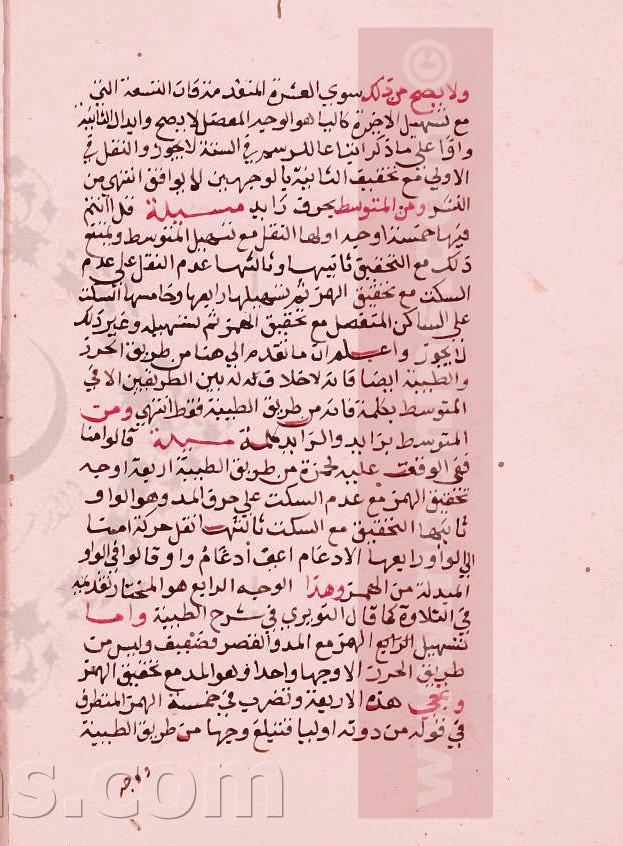 ولا يصح من ذلك سوي العشرة المتقدمة فان التسعة التي
مع تسهيل الاخرة كالياء هو الوجيد المعضل لا يصح وابدال الثانية
واوا علي ما ذكر اتباعا للرسم في الستة لا يجوز والنقل في
الاولي مع تخفيف الثانية بالوجهين لا يوافق انتهي من
النشر ومن المتوسط بحرف زايد مسيلة قل اانتم
فيها خمسة اوجه اولها النقل مع تسهيل المتوسط ويمتنع
ذلك مع التحقيق ثانيها وثالثها عدم النقل علي عدم
السكت مع تحقيق الهمز ثم تسهيلها رابعها وخامسها السكت
علي الساكن المنفصل مع تحقيق الهمز ثم تسهيله وغير ذلك
لا يجوز واعلم ان ما تقدم الي هنا من طريق الحرز
والطيبة ايضا فانه لا خلاف له بين الطريقين الا في
المتوسط بكلمة فانه من طريق الطيبة فقط انتهي ومن
المتوسط بزايد والزايد كلمة مسيلة قالوا امنا
ففي الوقف عليه لحمزة من طريق الطيبة اربعة اوجه
تحقيق الهمز مع عدم السكت علي حرف المد وهو الواو
ثانيها التحقيق مع السكت ثالثها نقل حركة امنا
الي الواو رابعها الادغام اعني ادغام واو قالوا في الواو
المبدلة من الهمز وهذا الوجه الرابع هو المختار تقديمه
في التلاوة كما قال النويري في شرح الطيبة واما
تسهيل الرابع الهمز مع المد والقصر فضعيف وليس من
طريق الحرز الا وجها واحدا وهو المد مع تحقيق الهمز
هذه الاربعة وتضرب في خمسة الهمز المتطرف
في قوله من دونه اوليا فتبلغ وجها من طريق الطيبة